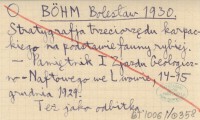 BÖHM Bolesław 1930.
Stratygrafja trzeciorzędu karpac-
kiego na podstawie fauny rybiej.
— Pamiętnik I Zjazdu Geologicz-
no-Naftowego we Lwowie, 14-15
grudnia 1929.
Też jako odbitka